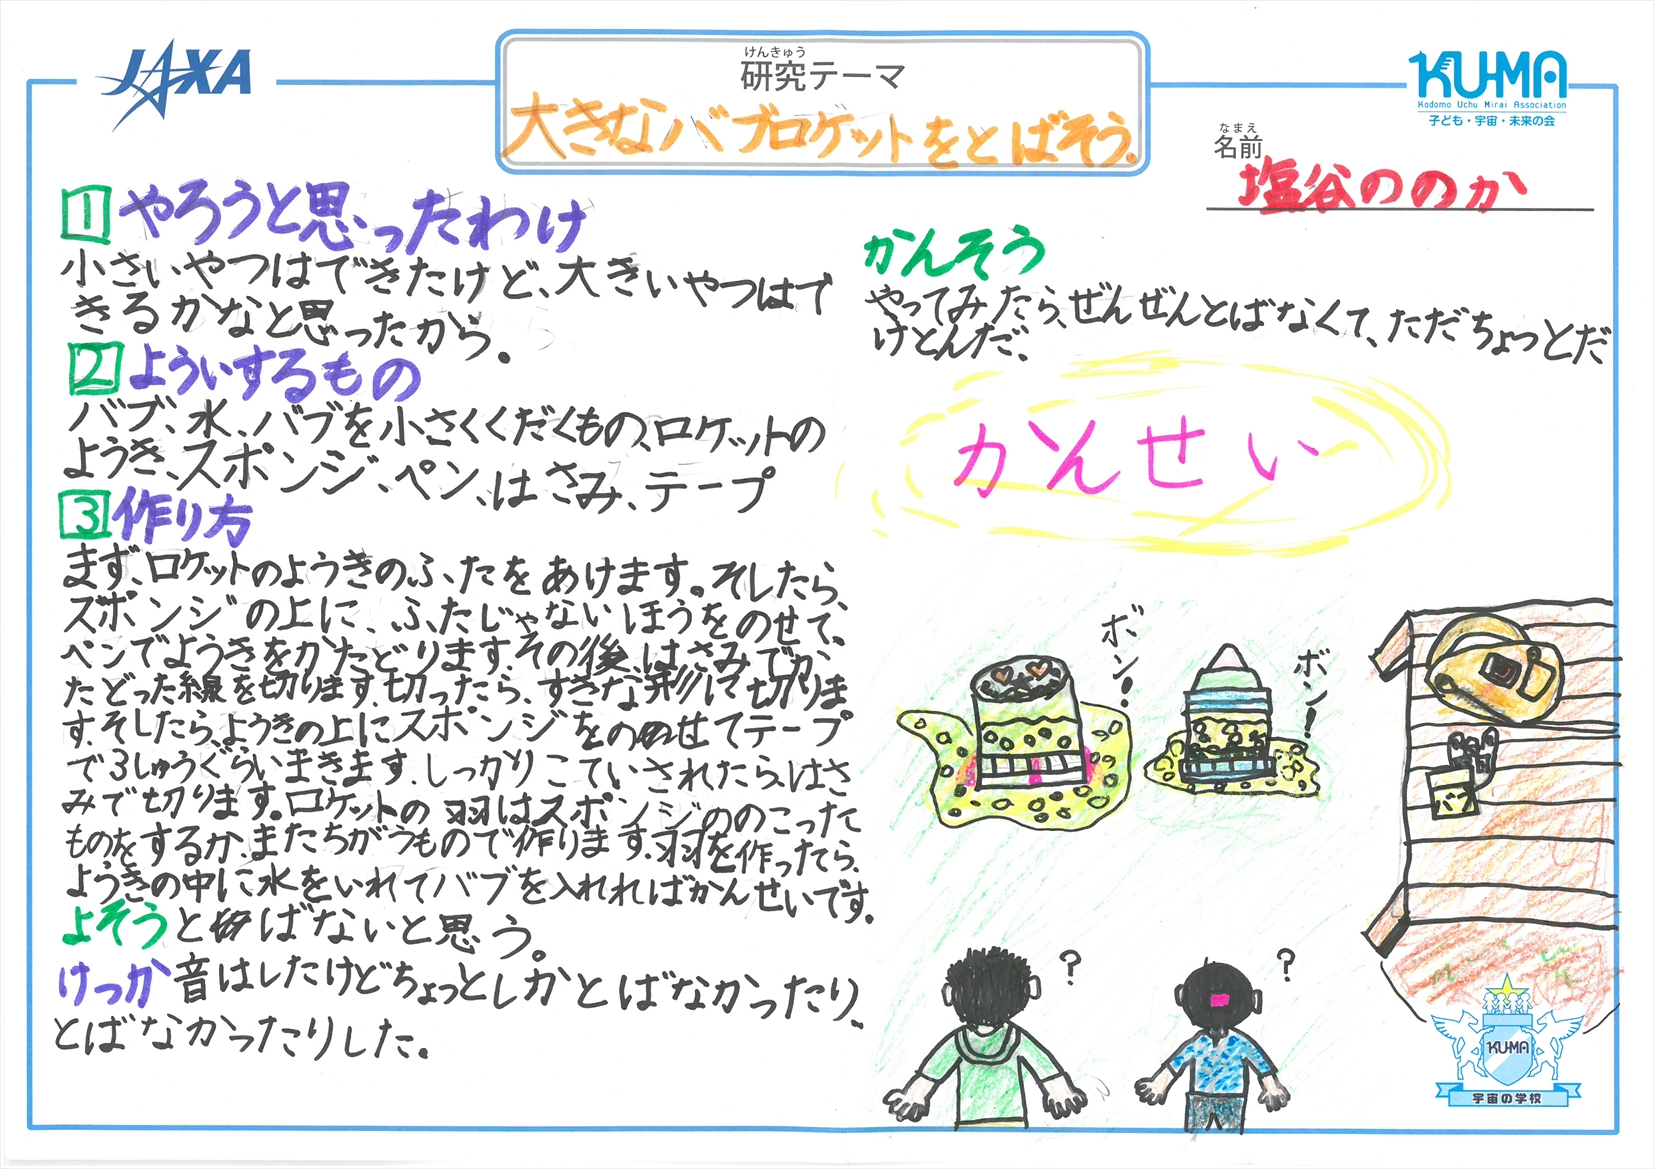 JAXA
けんきゅう
研究テーマ
大きなバブロケットをとばそう.
KU-MA
Kodomo Uchu Mirai Association
子ども・宇宙・未来の会
なまえ
名前
塩谷ののか
1 やろうと思ったわけ
小さいやつはできたけど、大きいやつはで
きるかなと思ったから。
2 よういするもの
バブ、水、バブを小さくくだくもの、ロケットの
ようき、スポンジ、ペン、はさみ、テープ
3 作り方
まず、ロケットのようきのふたをあけます。そしたら、
スポンジの上に、ふたじゃないほうをのせて、
ペンでようきをかたどります.その後、はさみでか
たどった線を切ります.切ったら、すきな形に切りま
す.そしたら、ようきの上にスポンジをのせてテープ
で3しゅうぐらいまきます.しっかりこていされたら、はさ
みで切ります。ロケットの羽はスポンジののこった
ものをするか、またちがうもので作ります.羽を作ったら、
ようきの中に水をいれてバブを入れればかんせいです.
よそう とばないと思う。
けっか 音はしたけどちょっとしかとばなかったり、
とばなかったりした.
かんそう
やってみたら、ぜんぜんとばなくて、ただちょっとだ
けとんだ、
かんせい
ボン!
ボン!
バブ
?
?
KU-MA
宇宙の学校